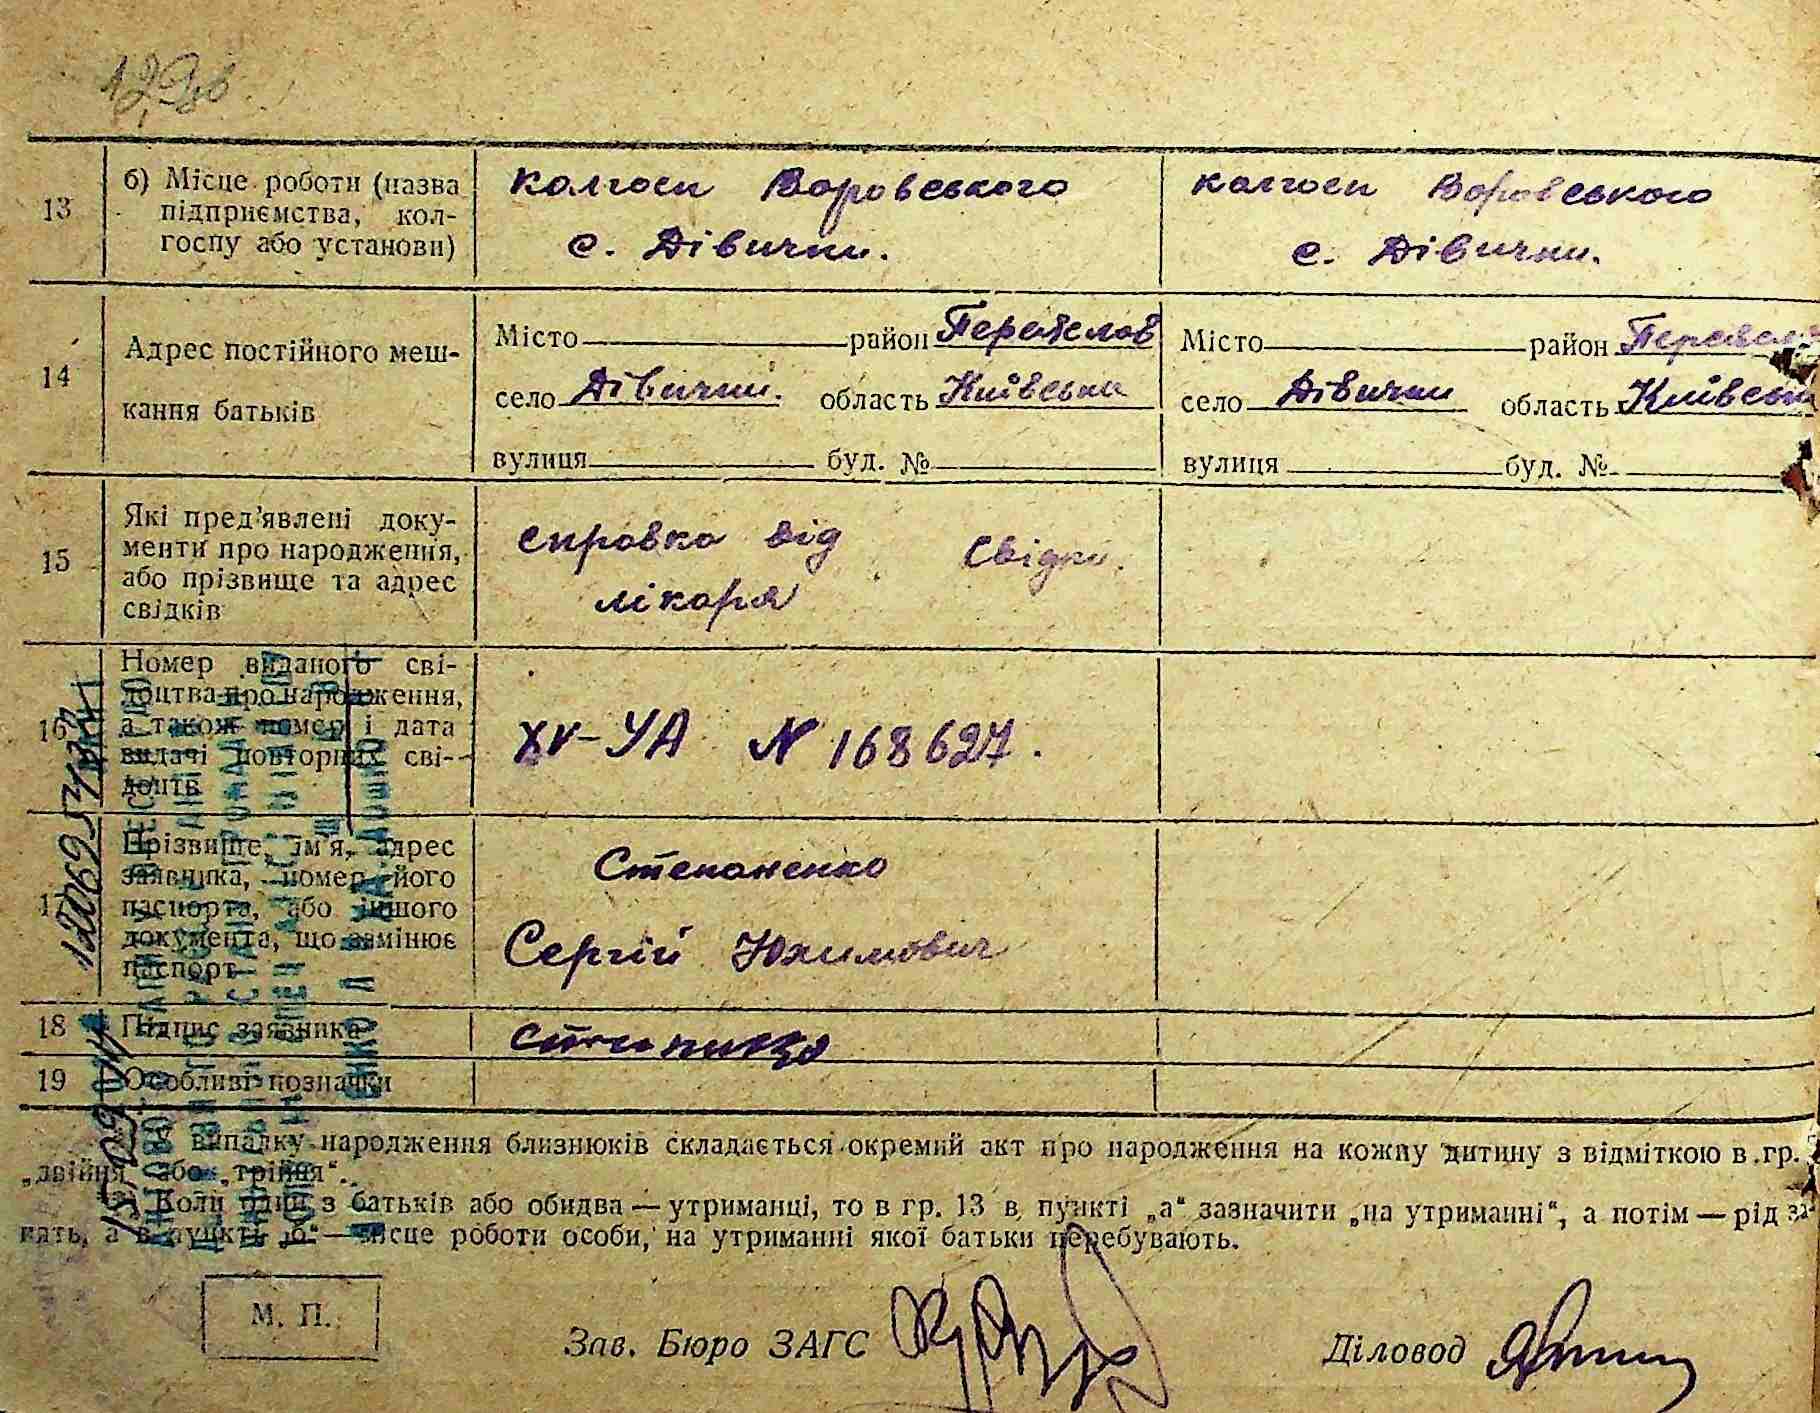 13 б) Місце роботи (назва підприємства, кол-
госпу або установи)
колгосп Воровського
с. Дівички.
колгосп Воровського
с. Дівички.
14 Адрес постійного меш-
кання батьків
Місто район Переяслов
село Дівички. область Київська
вулиця буд. №
Місто район
село Дівички область
вулиця буд. №
15 Які пред'явлені доку-
менти про народження,
або прізвище та адрес
свідків
справка від
лікаря
Свідки.
16 Номер виданого сві-
доцтва про народження,
а також номер і дата
видачі повторних сві-
доцтв
XV-УА N 168627.
17 Прізвище, ім'я, адрес
заявника, номер його
паспорта, або іншого
документа, що замінює
паспорт
Степаненко
Сергій Юхимович
18 Підпис заявника
19 Особливі позначки
випадку народження близнюків складається окремий акт про народження на кожну дитину з відміткою в гр.
„двійня або „трійня“.
2) Коли один з батьків або обидва — утриманці, то в гр. 13 в пункті „а“ зазначити „на утриманні“, а потім — рід за-
нять, а в пункті „б“ — місце роботи особи, на утриманні якої батьки перебувають.
М. П.
Зав. Бюро ЗАГС
Діловод